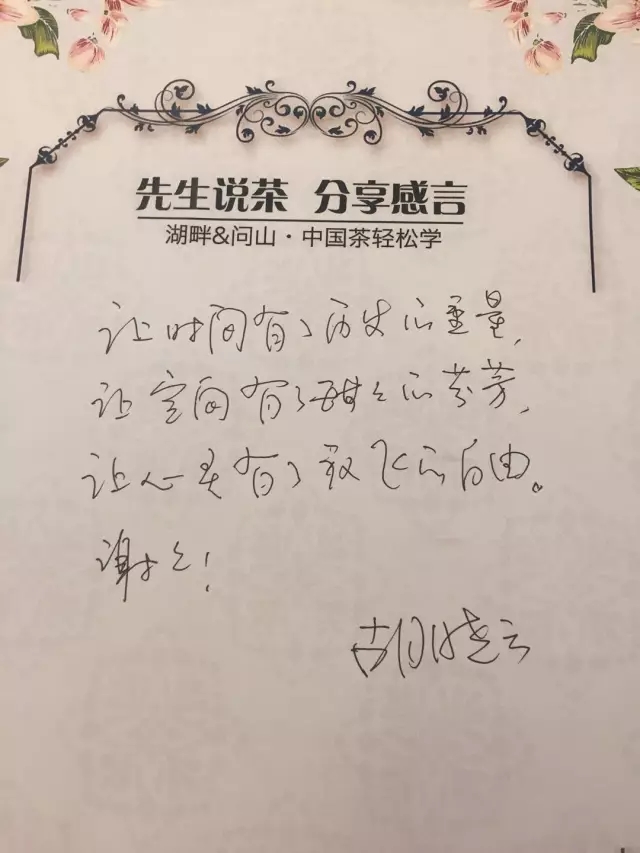 先生说茶 分享感言
湖畔&问山·中国茶轻松学
让时间有了历史的重量,
让空间有了甜甜的芬芳,
让心灵有了放飞的自由。
谢谢!
胡晓云